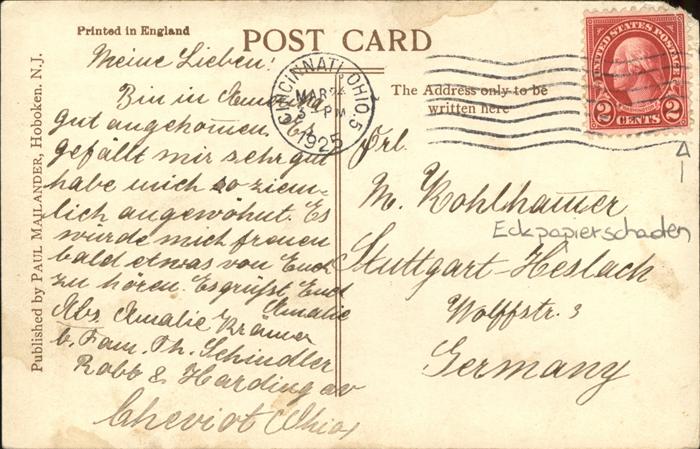 Printed in England
POST CARD
Published by PAUL MAILANDER, Hoboken, N.J.
The Address only to be
written here
CINCINNATI, OHIO. 5
MAR
PM
1925
UNITED STATES POSTAGE
2 CENTS 2
Meine Lieben!
Bin in Amerika
gut angekommen
gefällt mir sehr gut
habe mich so ziem-
lich angewöhnt. Es
würde mich freuen
bald etwas von Euch
zu hören. Es grüßt Euch
Amalie
Abs. Amalie Krämer
b. Fam. Th. Schindler
Robb & Harding av
Cheviot Ohio
Frl.
M. Kohlhamer
Eckpapierschaden
Stuttgart-Heslach
Wolffstr. 3
Germany